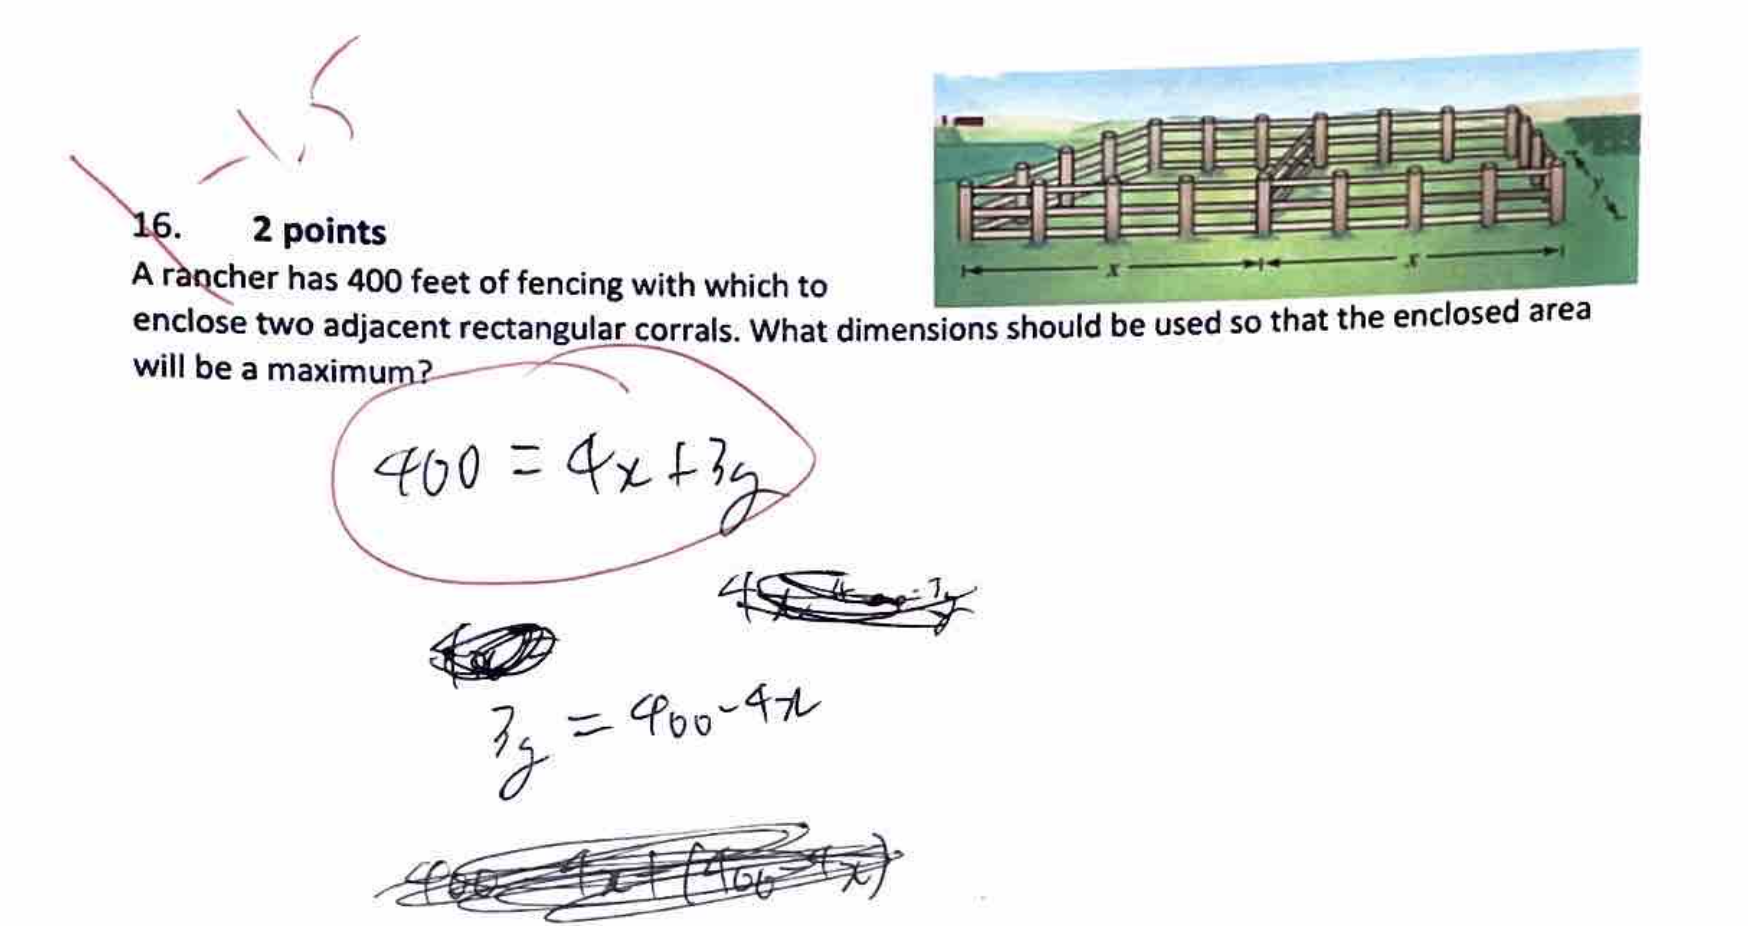 -1.5
16. 2 points
A rancher has 400 feet of fencing with which to
enclose two adjacent rectangular corrals. What dimensions should be used so that the enclosed area
will be a maximum?
x x y
400 = 4x+3y
3y = 400-4x